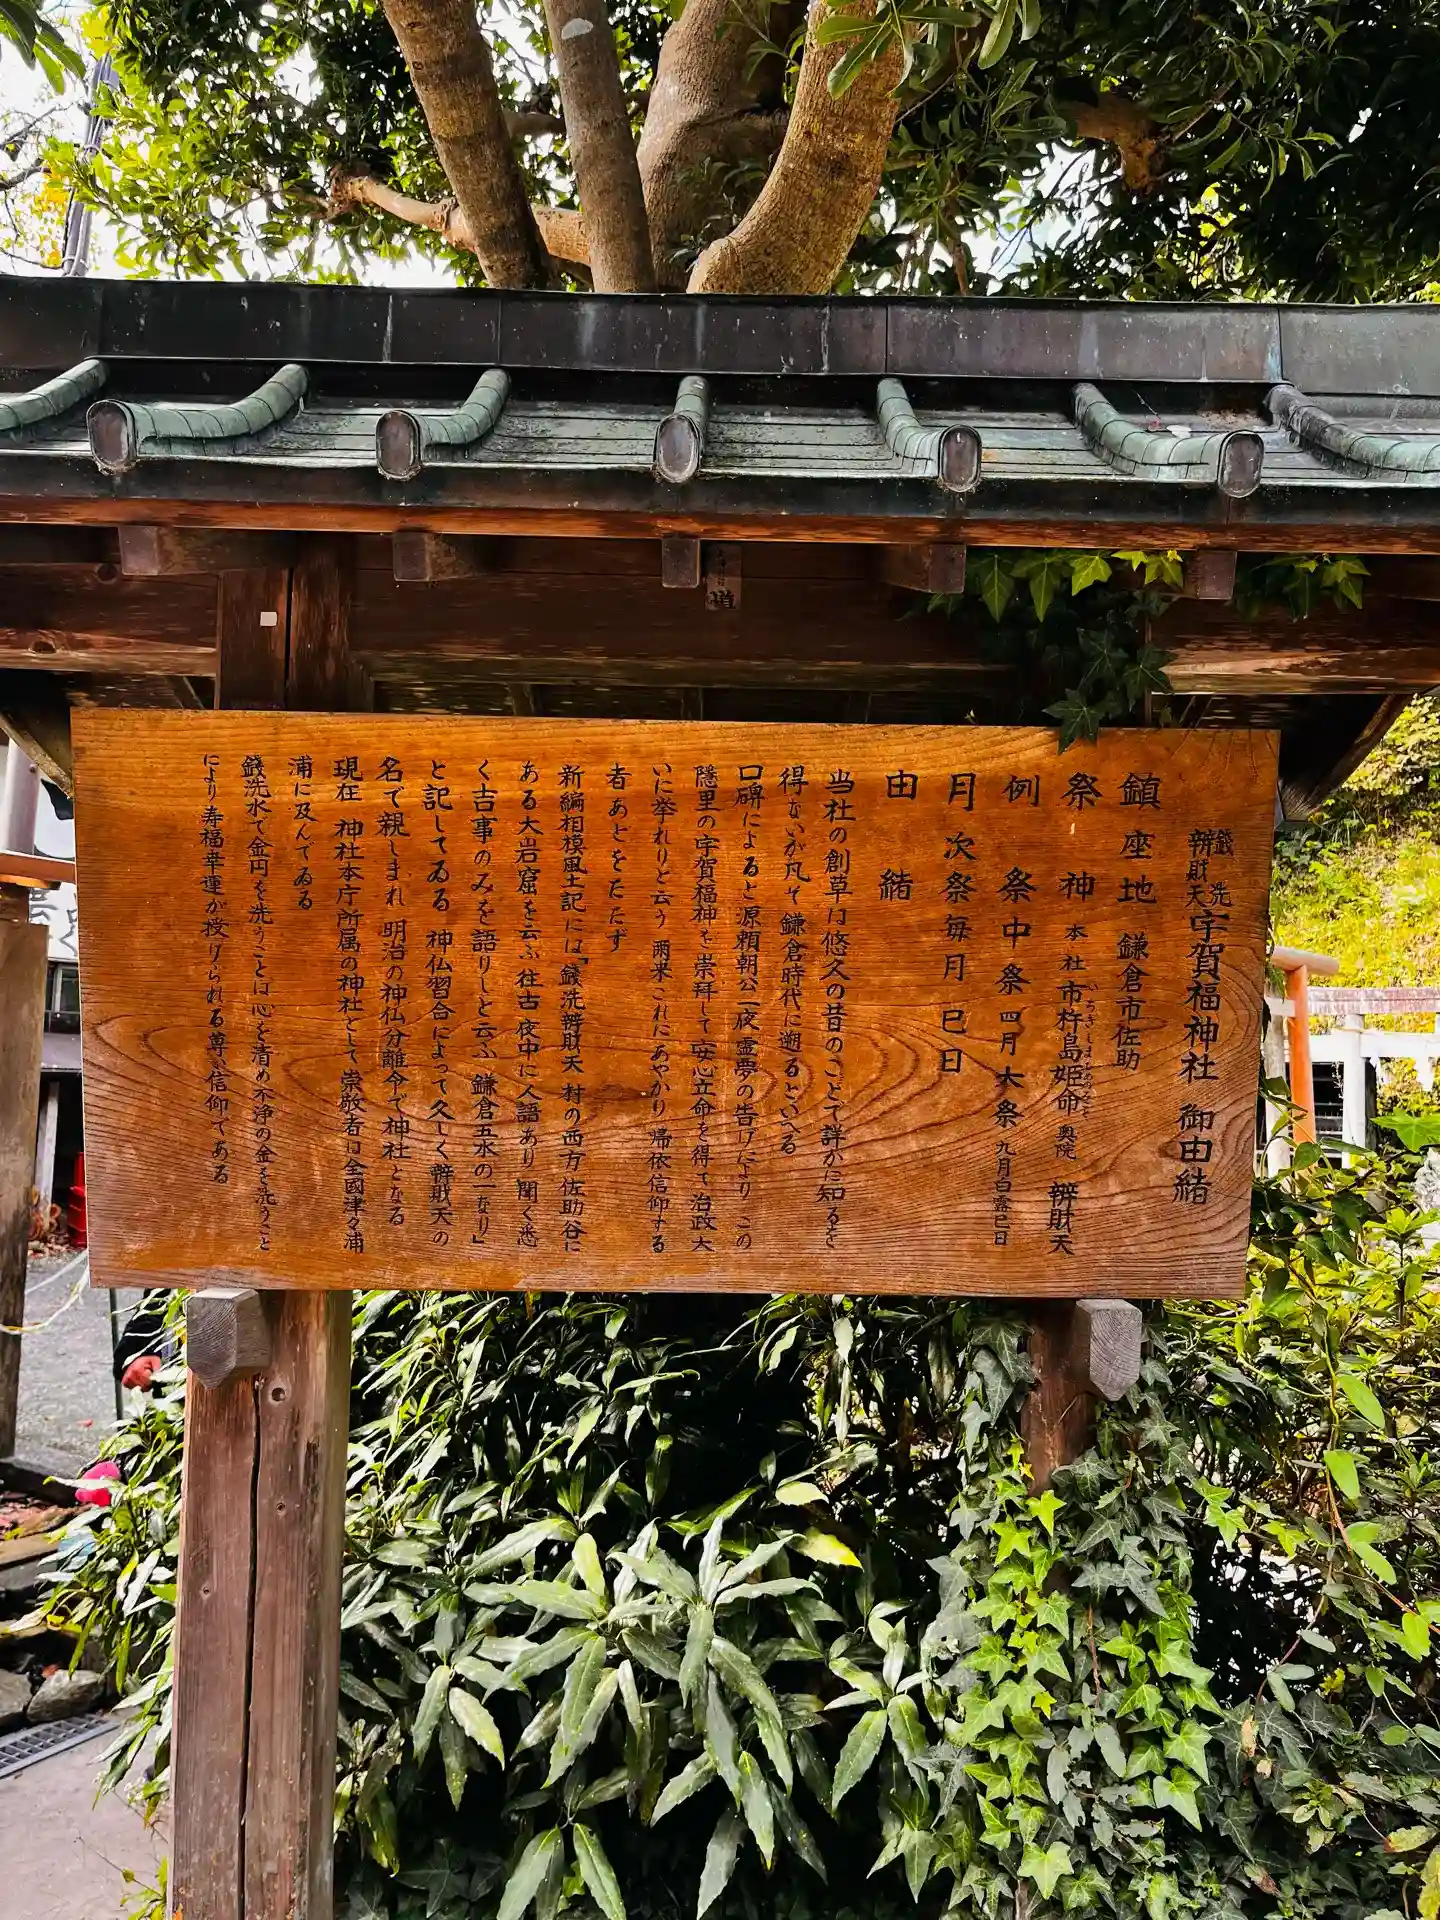 銭洗
辨財天
宇賀福神社 御由緒
鎮座地 鎌倉市佐助
祭神 本社市杵島姫命 奥院 辨財天
いちきしまひめのみこと
例祭中祭 四月大祭 九月白露巳日
月次祭毎月巳日
由緒
当社の創草は悠久の昔のことで詳かに知るを
得ないが凡そ鎌倉時代に遡るといへる
口碑によると源頼朝公一夜霊夢の告げにより この
隠里の宇賀福神を崇拜して安心立命を得て 治政大
いに挙れりと云う 爾来これにあやかり 帰依信仰する
者あとをたたず
新編相模風土記には「銭洗辨財天 村の西方 佐助谷に
ある大岩窟を云ふ 往古 夜中に人語あり 聞く悉
く吉事のみを語りしと云ふ 鎌倉五水の一なり」
と記してゐる 神仏習合によって久しく辨財天の
名で親しまれ 明治の神仏分離令で神社となる
現在 神社本庁所属の神社として崇敬者は全國津々浦
浦に及んでゐる
銭洗水で金円を洗うことは心を清め不浄の金を洗うこと
により寿福幸運が授けられる尊い信仰である